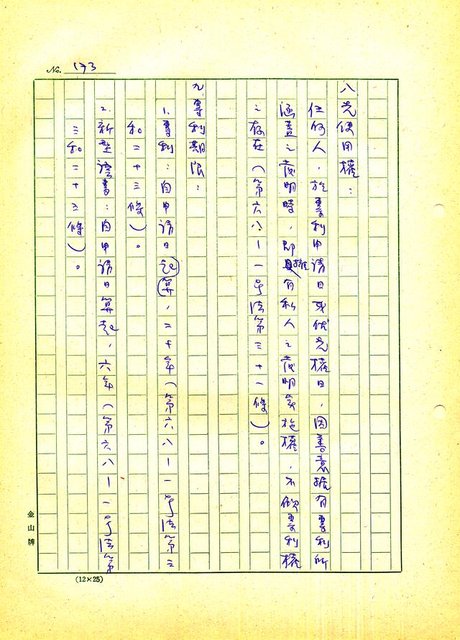 No. 173
八先使用權：
任何人，於專利申請日或優先權日，因善意擁有專利所
涵蓋之發明時，即擁有私人之發明實施權，不候專利權
之存在（第六八—一號法第三十一條）。
九專利期限：
1.專利：自申請日起算，二十年（第六八—一號法第三
和二十三條）。
2.新型證書：自申請日算起，六年（第六八—一號法第
三和二十三條）。
金山牌
(12×25)